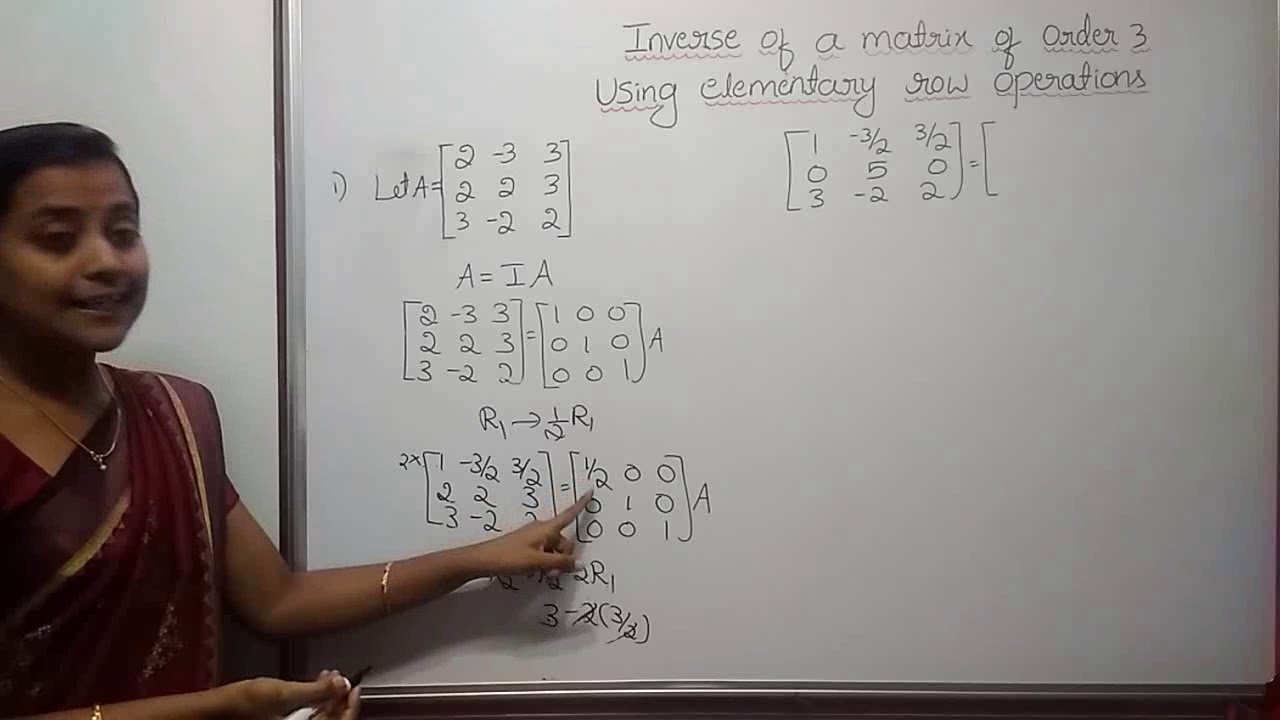 Inverse of a matrix of Order 3
Using elementary row operations
1) Let A = [2 -3 3
2 2 3
3 -2 2]
A = I A
[2 -3 3] = [1 0 0] A
[2 2 3] [0 1 0]
[3 -2 2] [0 0 1]
R₁ → ½ R₁
2× [1 -3/2 3/2] = [1/2 0 0] A
[2 2 3] [0 1 0]
[3 -2 [0 0 1]
2R₁
3 - 2(3/2)
[1 -3/2 3/2] = [
[0 5 0]
[3 -2 2]